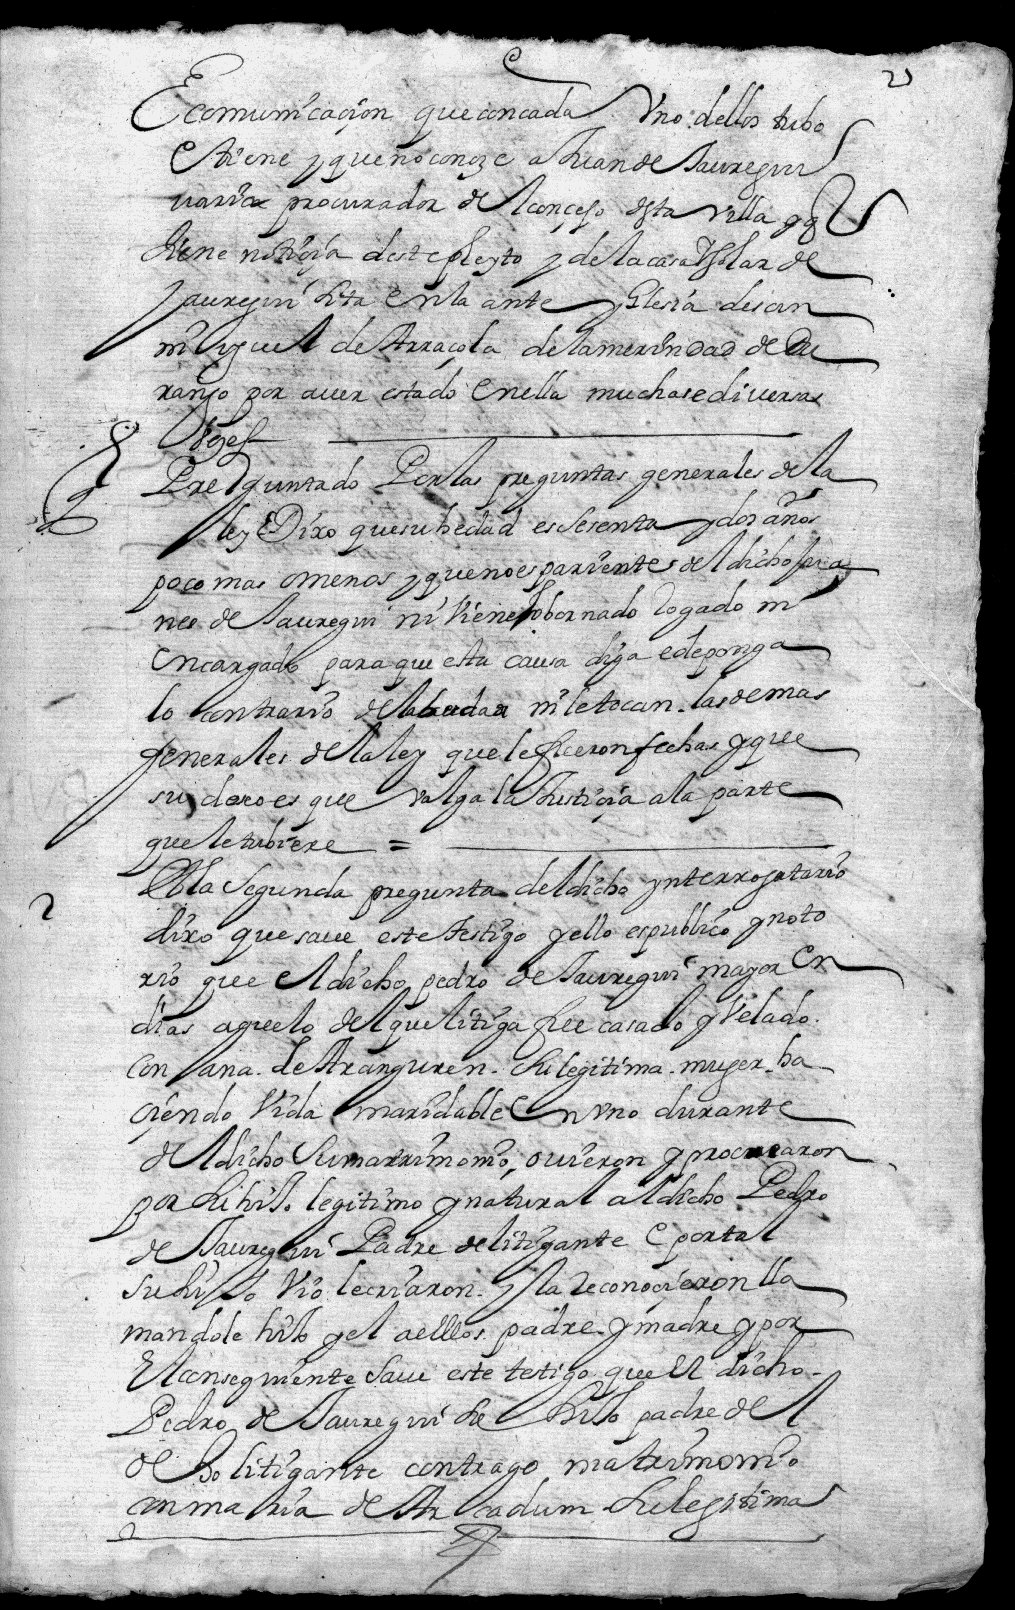 Ecomunicaçion que con cada Uno dellos tubo
e tiene y que no conoze a Juan de Jauregui
procurador del conçejo desta villa y q
tiene notiçia deste pleyto y de la casa y solar de
Jauregui sita en la ante yglesia de san
miguel de Arraçola de la merindad de Du
rango por aver estado en ella muchas e diversas
vezes
Preguntado Por las preguntas generales de la
ley Dixo que su hedad es sesenta y dos años
poco mas o menos y que no es pariente del dicho
de Jauregui ni viene sobornado Rogado ni
encargado para que esta causa diga e deponga
lo contrario de la ni le tocan las demas
generales de la ley que le fueron fechas y que
su deseo es que valga la Justiçia a la parte
que le tubiere =
2
A la Segunda pregunta del dicho ynterrogatario
dixo que save este testigo y ello es publico y noto
rio que el dicho pedro de Jauregui mayor en
dias aguelo del que litiga fue casado y velado
con ana de Aranguren su legitima muger ha
çiendo Vida maridable en uno durante
del dicho su matrimonio, ouieron y procrearon
por su hijo legitimo y natural al dicho Pedro
de Jauregui Padre del litigante e por tal
su hijo Vio le criaron y la Reconoçieron lla
mandole hijo y el a ellos padre y madre y por
El conseguiente Save este testigo que el dicho
Pedro de Jauregui su hijo padre del
dcho litigante contrago matrimonio
con maria de su legitima